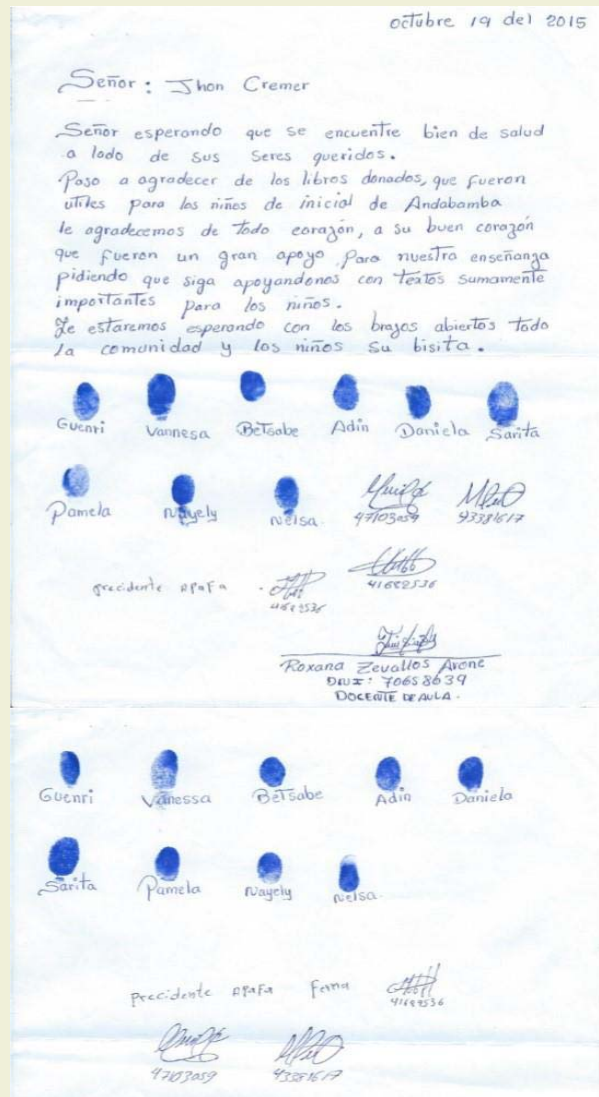 octubre 19 del 2015
Señor: Jhon Cremer
Señor esperando que se encuentre bien de salud
a lado de sus seres queridos.
Paso a agradecer de los libros donados, que fueron
útiles para los niños de inicial de Andabamba
le agradecemos de todo corazón, a su buen corazón
que fueron un gran apoyo para nuestra enseñanza
pidiendo que siga apoyandonos con textos sumamente
importantes para los niños.
Le estaremos esperando con los brazos abiertos todo
la comunidad y los niños su bisita.
Guenri Vannesa Betsabe Adin Daniela Sarita
Pamela Nayely Nelsa. 47103059 43381617
41682536
precidente APaFa 41682536
Roxana Zevallos Arone
DNI: 70658639
DOCENTE DE AULA.
Guenri Vanessa Betsabe Adin Daniela
Sarita Pamela Nayely Nelsa.
precidente APaFa Fema 41682536
47103059 43381617